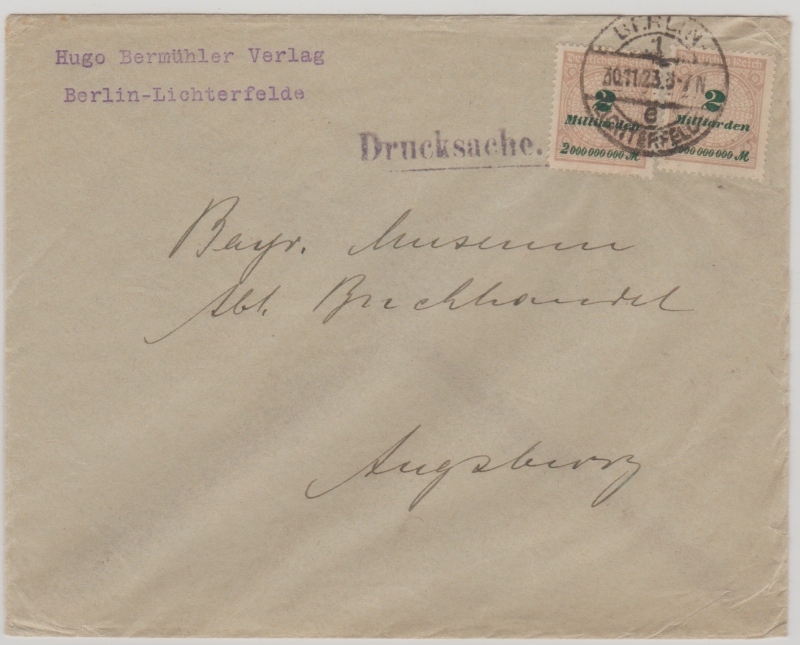 Hugo Bermühler Verlag
Berlin-Lichterfelde
Drucksache.
BERLIN-
1
30.11.23.6-7N
e
LICHTERFELDE
2
Milliarden
2000000000 M
2
Milliarden
000000000 M
Bayr. Museum
Abt. Buchhandel
Augsburg